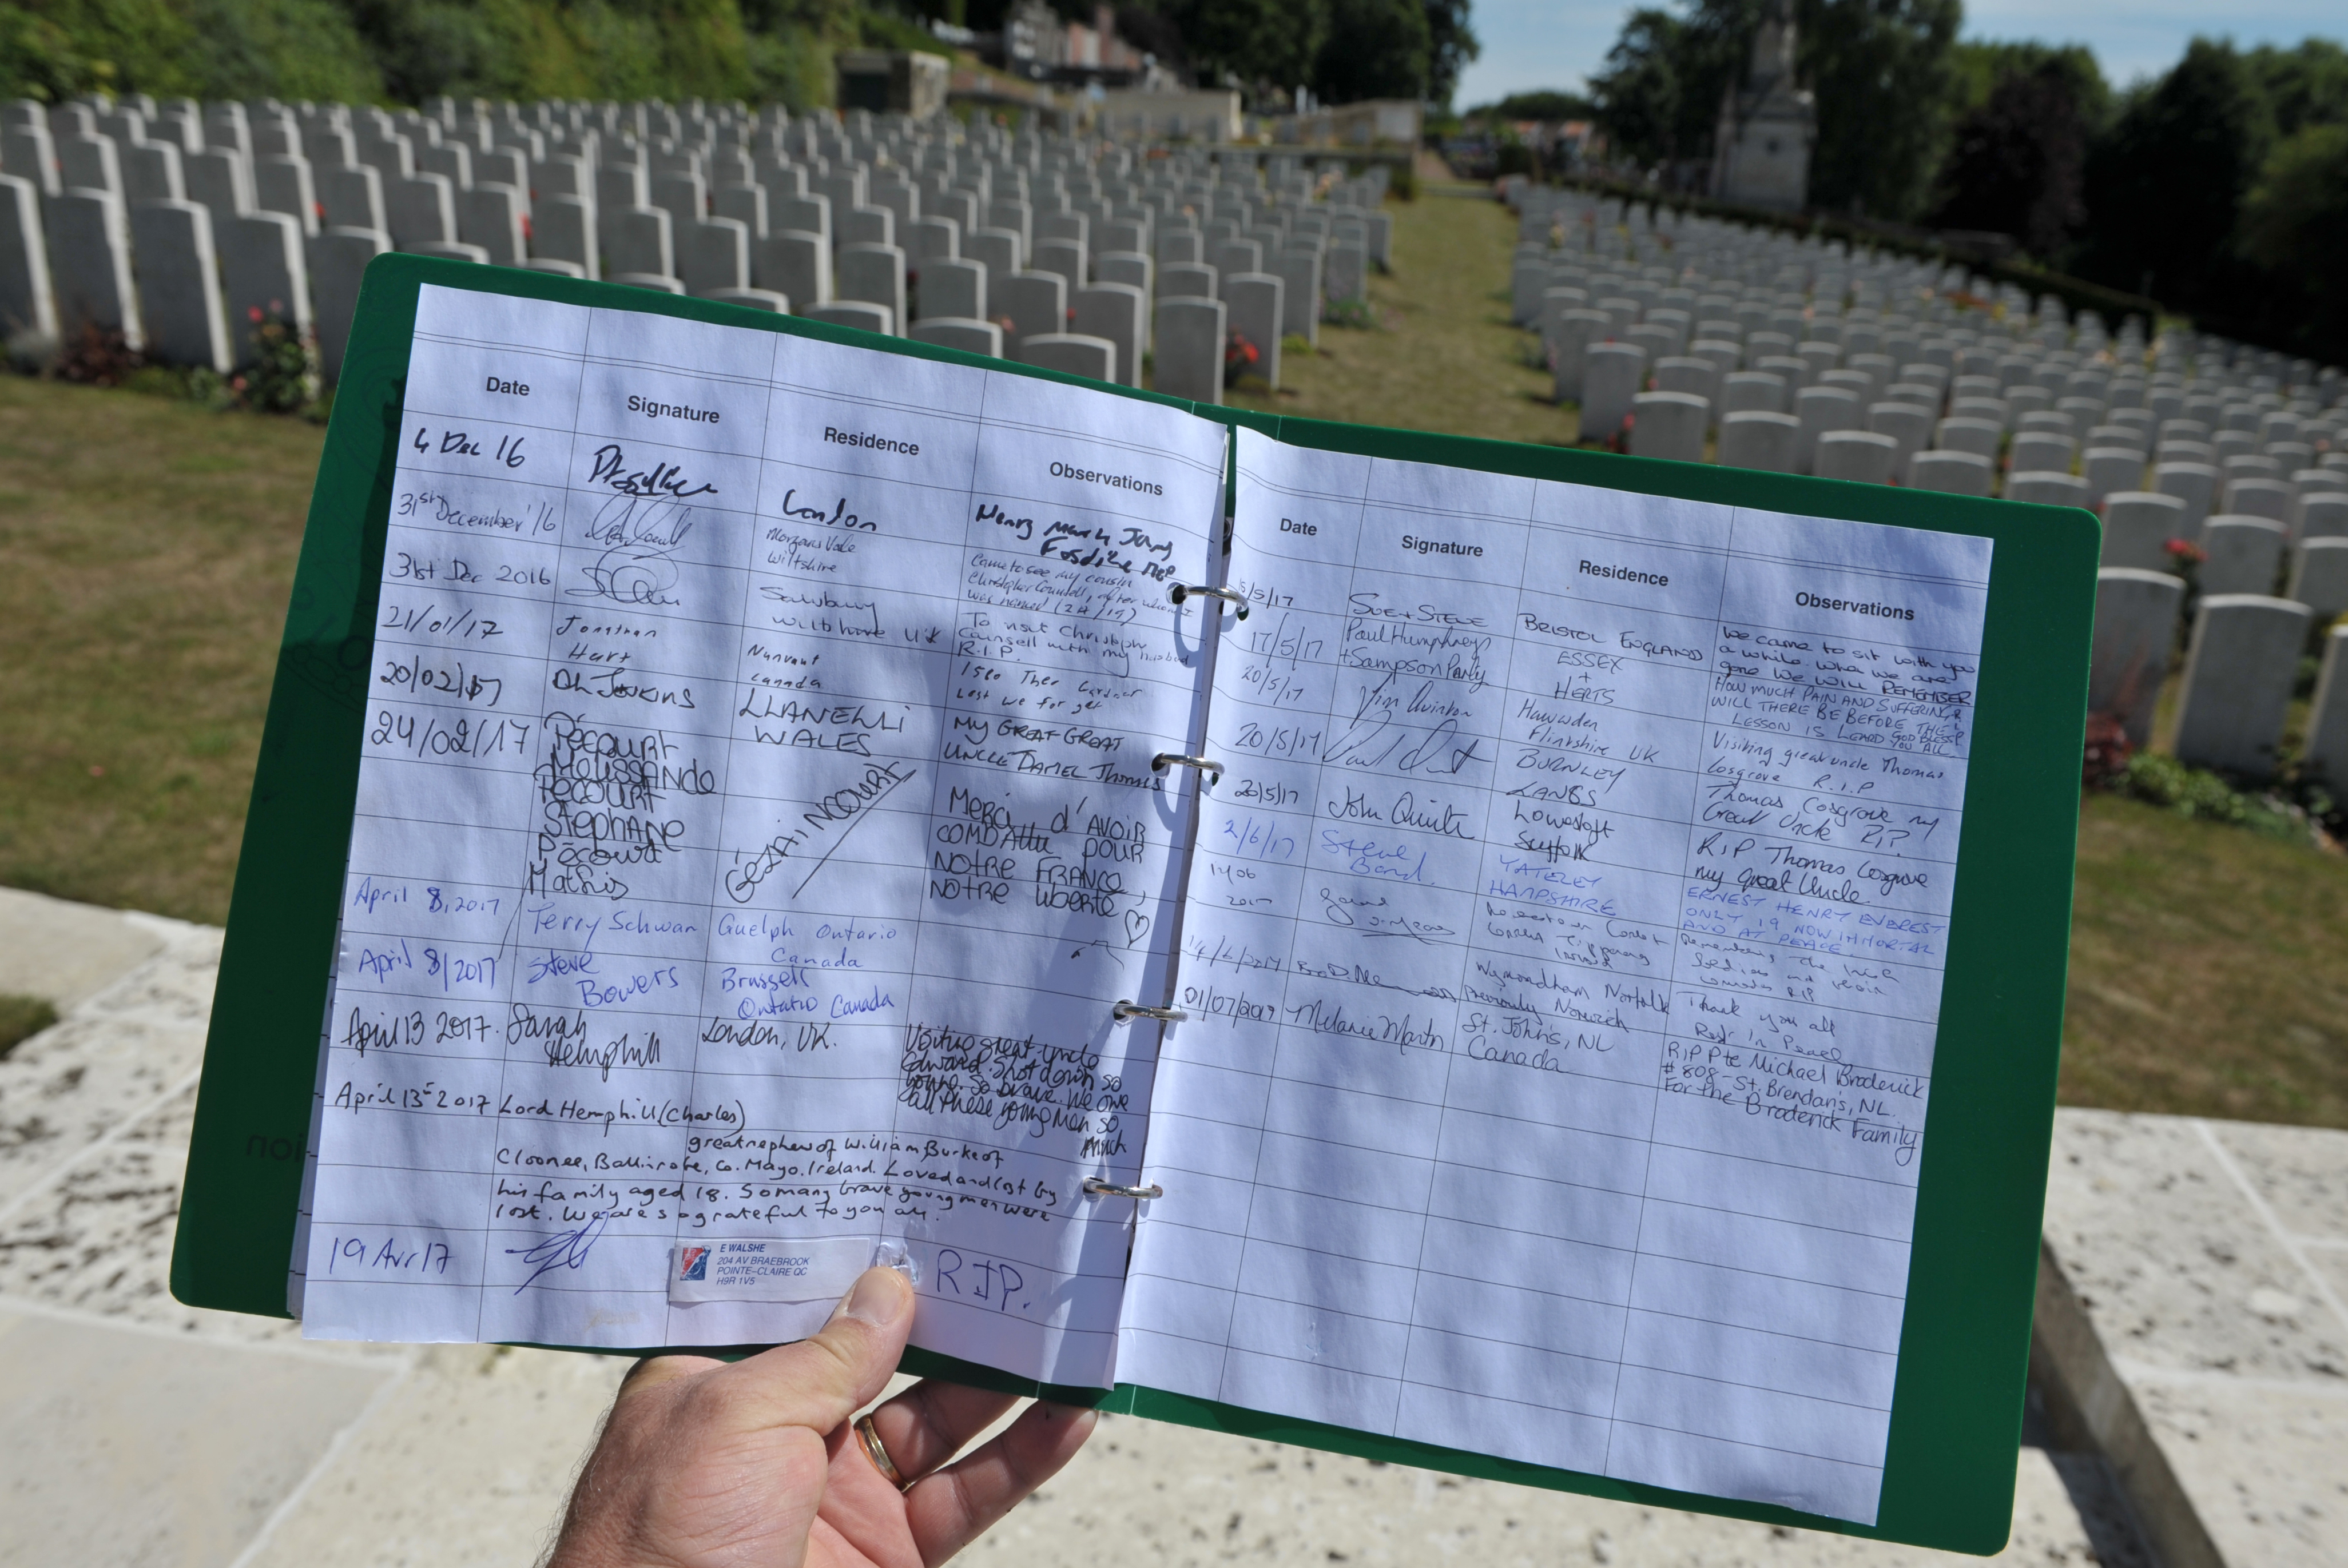 Date Signature Residence Observations
4 Dec 16
London
Henry Mark Jany
Fosdike RIP
31st December '16
Morgans Vale
Wiltshire
Came to see my cousin
Christopher Counsell, after whom I
was named (24/19)
31st Dec 2016
Salisbury
Wiltshire UK
To visit Christoph
Counsell with my husband
R.I.P.
21/01/17
Jonathan
Hart
Nunavut
Canada
Lest we forget
20/02/17
Jenkins
LLANELLI
WALES
MY GREAT GREAT
UNCLE DANIEL Thomas
24/02/17
Pécourt
Mélissande
Pécourt
Stéphane
Pécourt
Mathis
GÉZAINCOURT
Merci d'avoir
combattu pour
notre France,
notre liberté
April 8, 2017
Terry Schwan
Guelph Ontario
Canada
April 8/2017
Steve
Bowers
Brussell
Ontario Canada
April 13 2017.
Sarah
Hemphill
London, UK.
Visiting great uncle
Edward. Shot down so
young. So brave. We owe
all these young men so
much
April 13 2017 Lord Hemphill (Charles)
great nephew of William Burke of
Cloonee, Ballinrobe, Co. Mayo. Ireland. Loved and lost by
his family aged 18. So many brave young men were
lost. We are so grateful to you all.
19 Avr 17
E WALSHE
204 AV BRAEBROOK
POINTE-CLAIRE QC
H9R 1V5
RIP.
Date Signature Residence Observations
5/5/17
SUE + STEVE
BRISTOL ENGLAND
We came to sit with you
a while. when we are
gone we WILL REMEMBER
17/5/17
Paul Humphreys
+ Sampson Party
ESSEX
+
HERTS
HOW MUCH PAIN AND SUFFERING
WILL THERE BE BEFORE THE
LESSON IS LEARD GOD BLESS
YOU ALL
20/5/17
Jim Quinton
Hawarden
Flintshire UK
Visiting great uncle Thomas
Cosgrove R.I.P
20/5/17
BURNLEY
LANCS
Thomas Cosgrove my
Great Uncle RIP
20/5/17
John
Lowestoft
Suffolk
R.I.P Thomas Cosgrove
my great Uncle.
2/6/17
Steve
Bond.
YATELEY
HAMPSHIRE
ERNEST HENRY EVEREST
ONLY 19 NOW IMMORTAL
AND AT PEACE.
14 06
2017
Remembering the
RIP
14/6/2017
Wymondham Norfolk
Previously Norwich
Thank you all
Rest In Peace
01/07/2017
Melanie Martin
St. John's, NL
Canada
RIP Pte Michael Broderick
#808 - St. Brendan's, NL.
For the Broderick Family